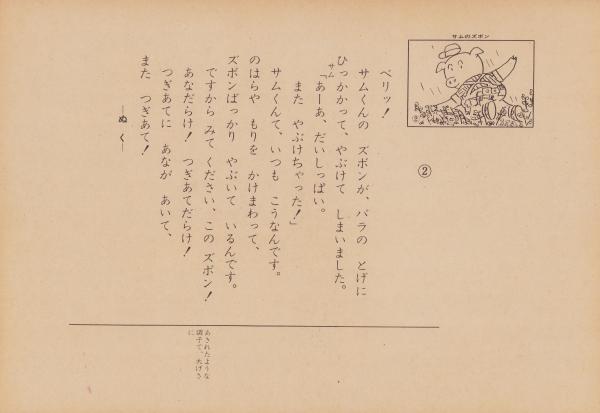 サムのズボン
②
ベリッ！
サムくんの ズボンが、バラの とげに
ひっかかって、やぶけて しまいました。
サム
「あーあ、だいしっぱい。
また やぶけちゃった！」
サムくんて、いつも こうなんです。
のはらや もりを かけまわって、
ズボンばっかり やぶいて いるんです。
ですから みて ください、この ズボン！
あなだらけ！ つぎあてだらけ！
つぎあてに あなが あいて、
また つぎあて！
―ぬ く―
あきれたような
調子で、大げさ
に